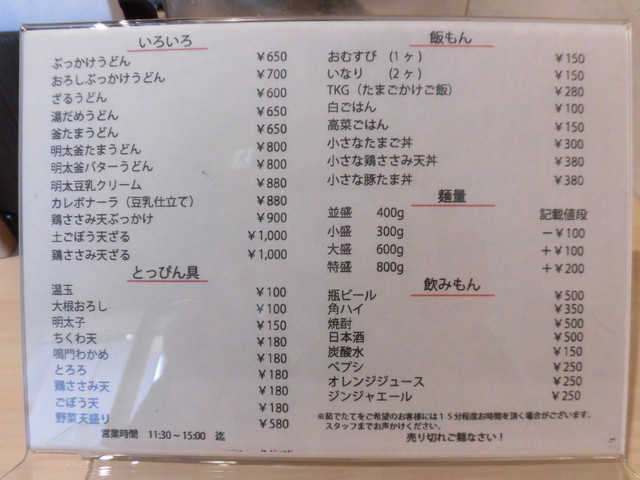 いろいろ
ぶっかけうどん ￥650
おろしぶっかけうどん ￥700
ざるうどん ￥600
湯だめうどん ￥650
釜たまうどん ￥650
明太釜たまうどん ￥800
明太釜バターうどん ￥800
明太豆乳クリーム ￥880
カレボナーラ（豆乳仕立て） ￥880
鶏ささみ天ぶっかけ ￥900
土ごぼう天ざる ￥1,000
鶏ささみ天ざる ￥1,000
とっぴん具
温玉 ￥100
大根おろし ￥100
明太子 ￥150
ちくわ天 ￥180
鳴門わかめ ￥180
とろろ ￥180
鶏ささみ天 ￥180
ごぼう天 ￥180
野菜天盛り ￥580
営業時間 11:30～15:00 迄
飯もん
おむすび （1ヶ） ￥150
いなり （2ヶ） ￥150
TKG（たまごかけご飯） ￥280
白ごはん ￥100
高菜ごはん ￥150
小さなたまご丼 ￥300
小さな鶏ささみ天丼 ￥380
小さな豚たま丼 ￥380
麺量
並盛 400g 記載値段
小盛 300g －￥100
大盛 600g ＋￥100
特盛 800g ＋￥200
飲みもん
瓶ビール ￥500
角ハイ ￥350
焼酎 ￥500
日本酒 ￥500
炭酸水 ￥150
ペプシ ￥250
オレンジジュース ￥250
ジンジャエール ￥250
※茹でたてをご希望のお客様には１５分程度お時間を頂く場合がございます。
スタッフまでお声かけください。
売り切れご麺なさい！